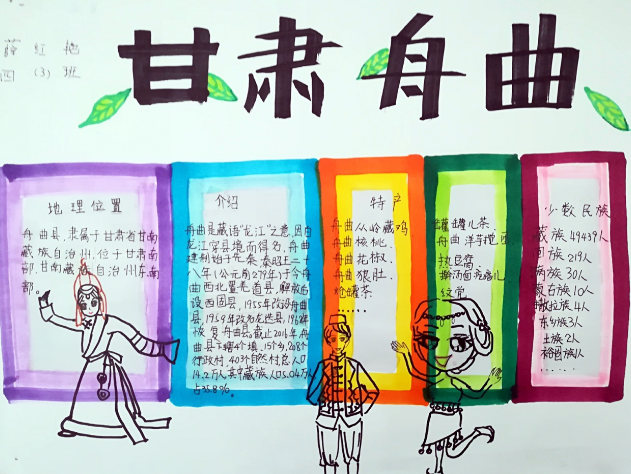 薛红艳
四(3)班
甘肃舟曲
地理位置
舟曲县,隶属于甘肃省甘南
藏族自治州,位于甘肃南
部.甘南藏族自治州东南
部。
介绍
舟曲县藏语“龙江”之意,因白
龙江穿县境而得名,舟曲
建制始于先秦,秦昭王二十
八年(公元前279年)于今舟
曲西北置羌道县,解放后
设西固县,1955年改设舟曲
县,1959年改为龙迭县,1962年
恢复舟曲县,截止2014年舟
曲县下辖4个镇,15个乡,208个
行政村,403个自然村总人口
14.2万人,其中藏族人口5.04万人
占35.8%。
特产
舟曲从岭藏鸡
舟曲核桃,
舟曲花椒.
舟曲
炝罐茶
......
罐罐儿茶
舟曲洋芋搅团
热豆腐
少数民族
藏族49439人
回族219人
满族30人
蒙古族10人
撒拉族4人
东乡族3人
土族2人
裕固族1人
......